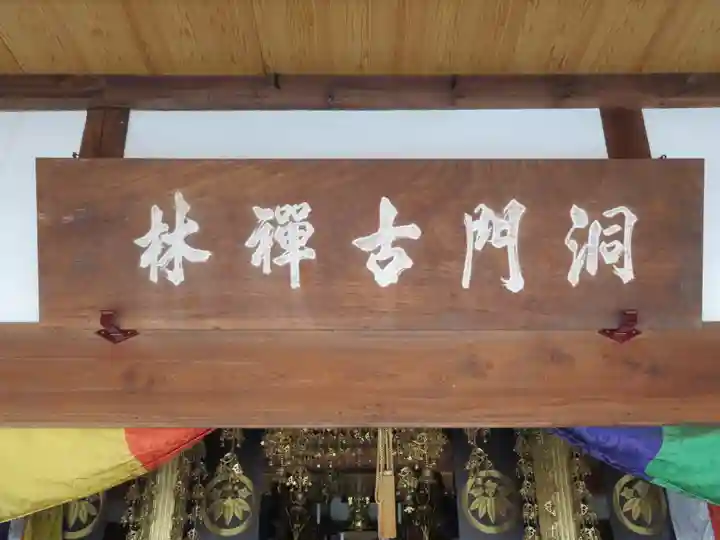 洞門古禪林